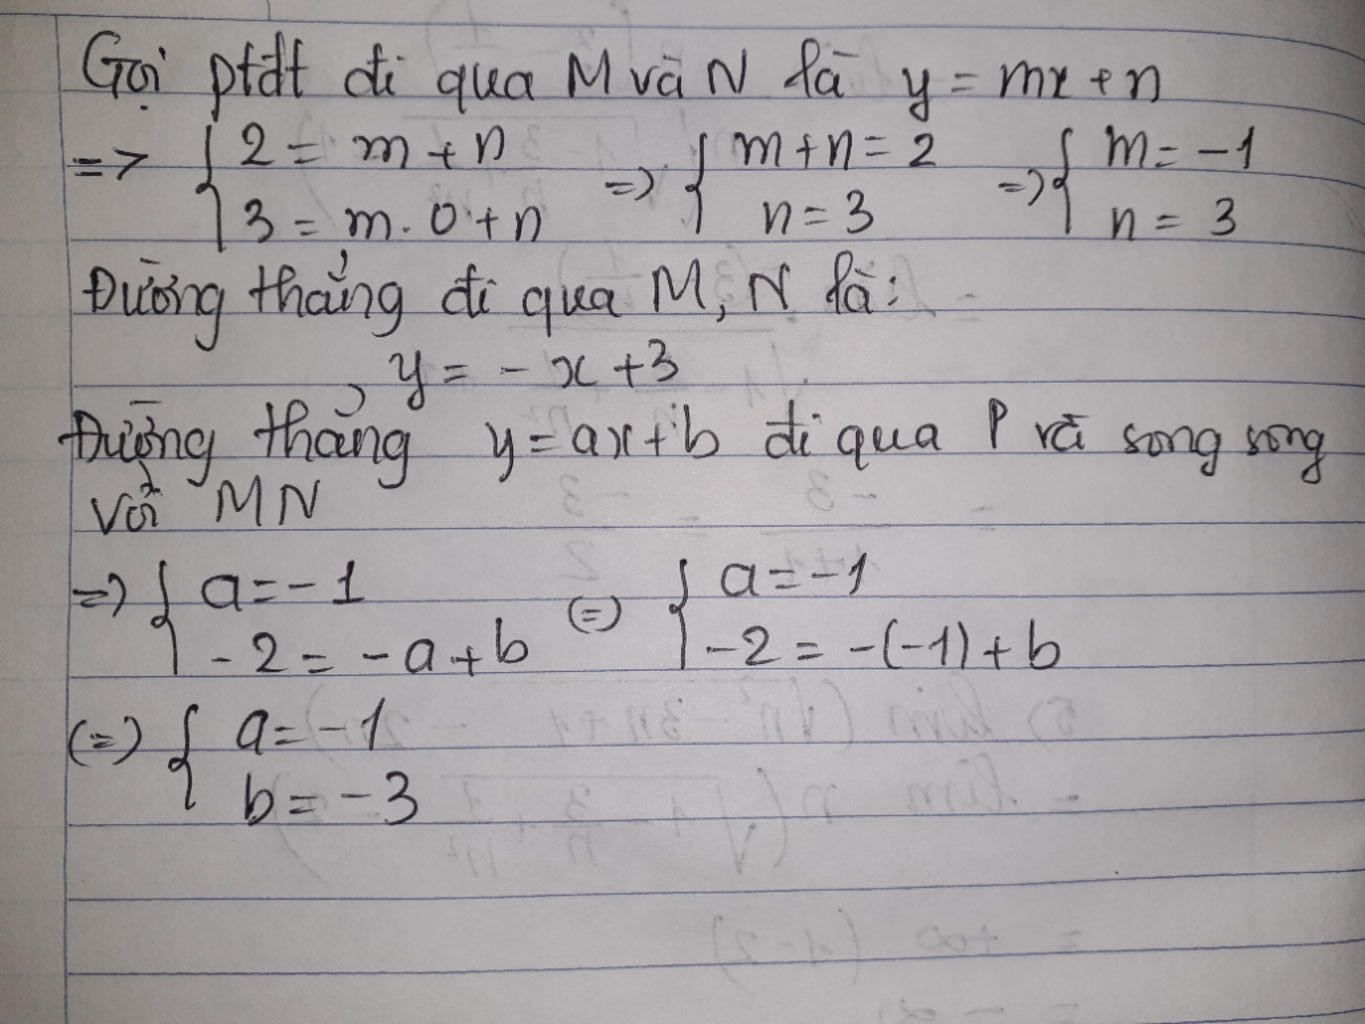 Gọi ptđt đi qua M và N là y = mx + n
=> { 2 = m + n => { m + n = 2 => { m = -1
3 = m. 0 + n n = 3 n = 3
Đường thẳng đi qua M, N là:
y = - x + 3
Đường thẳng y = ax + b đi qua P và song song
với MN
=> { a = - 1 (=) { a = - 1
- 2 = - a + b - 2 = - (-1) + b
(=) { a = - 1
b = - 3